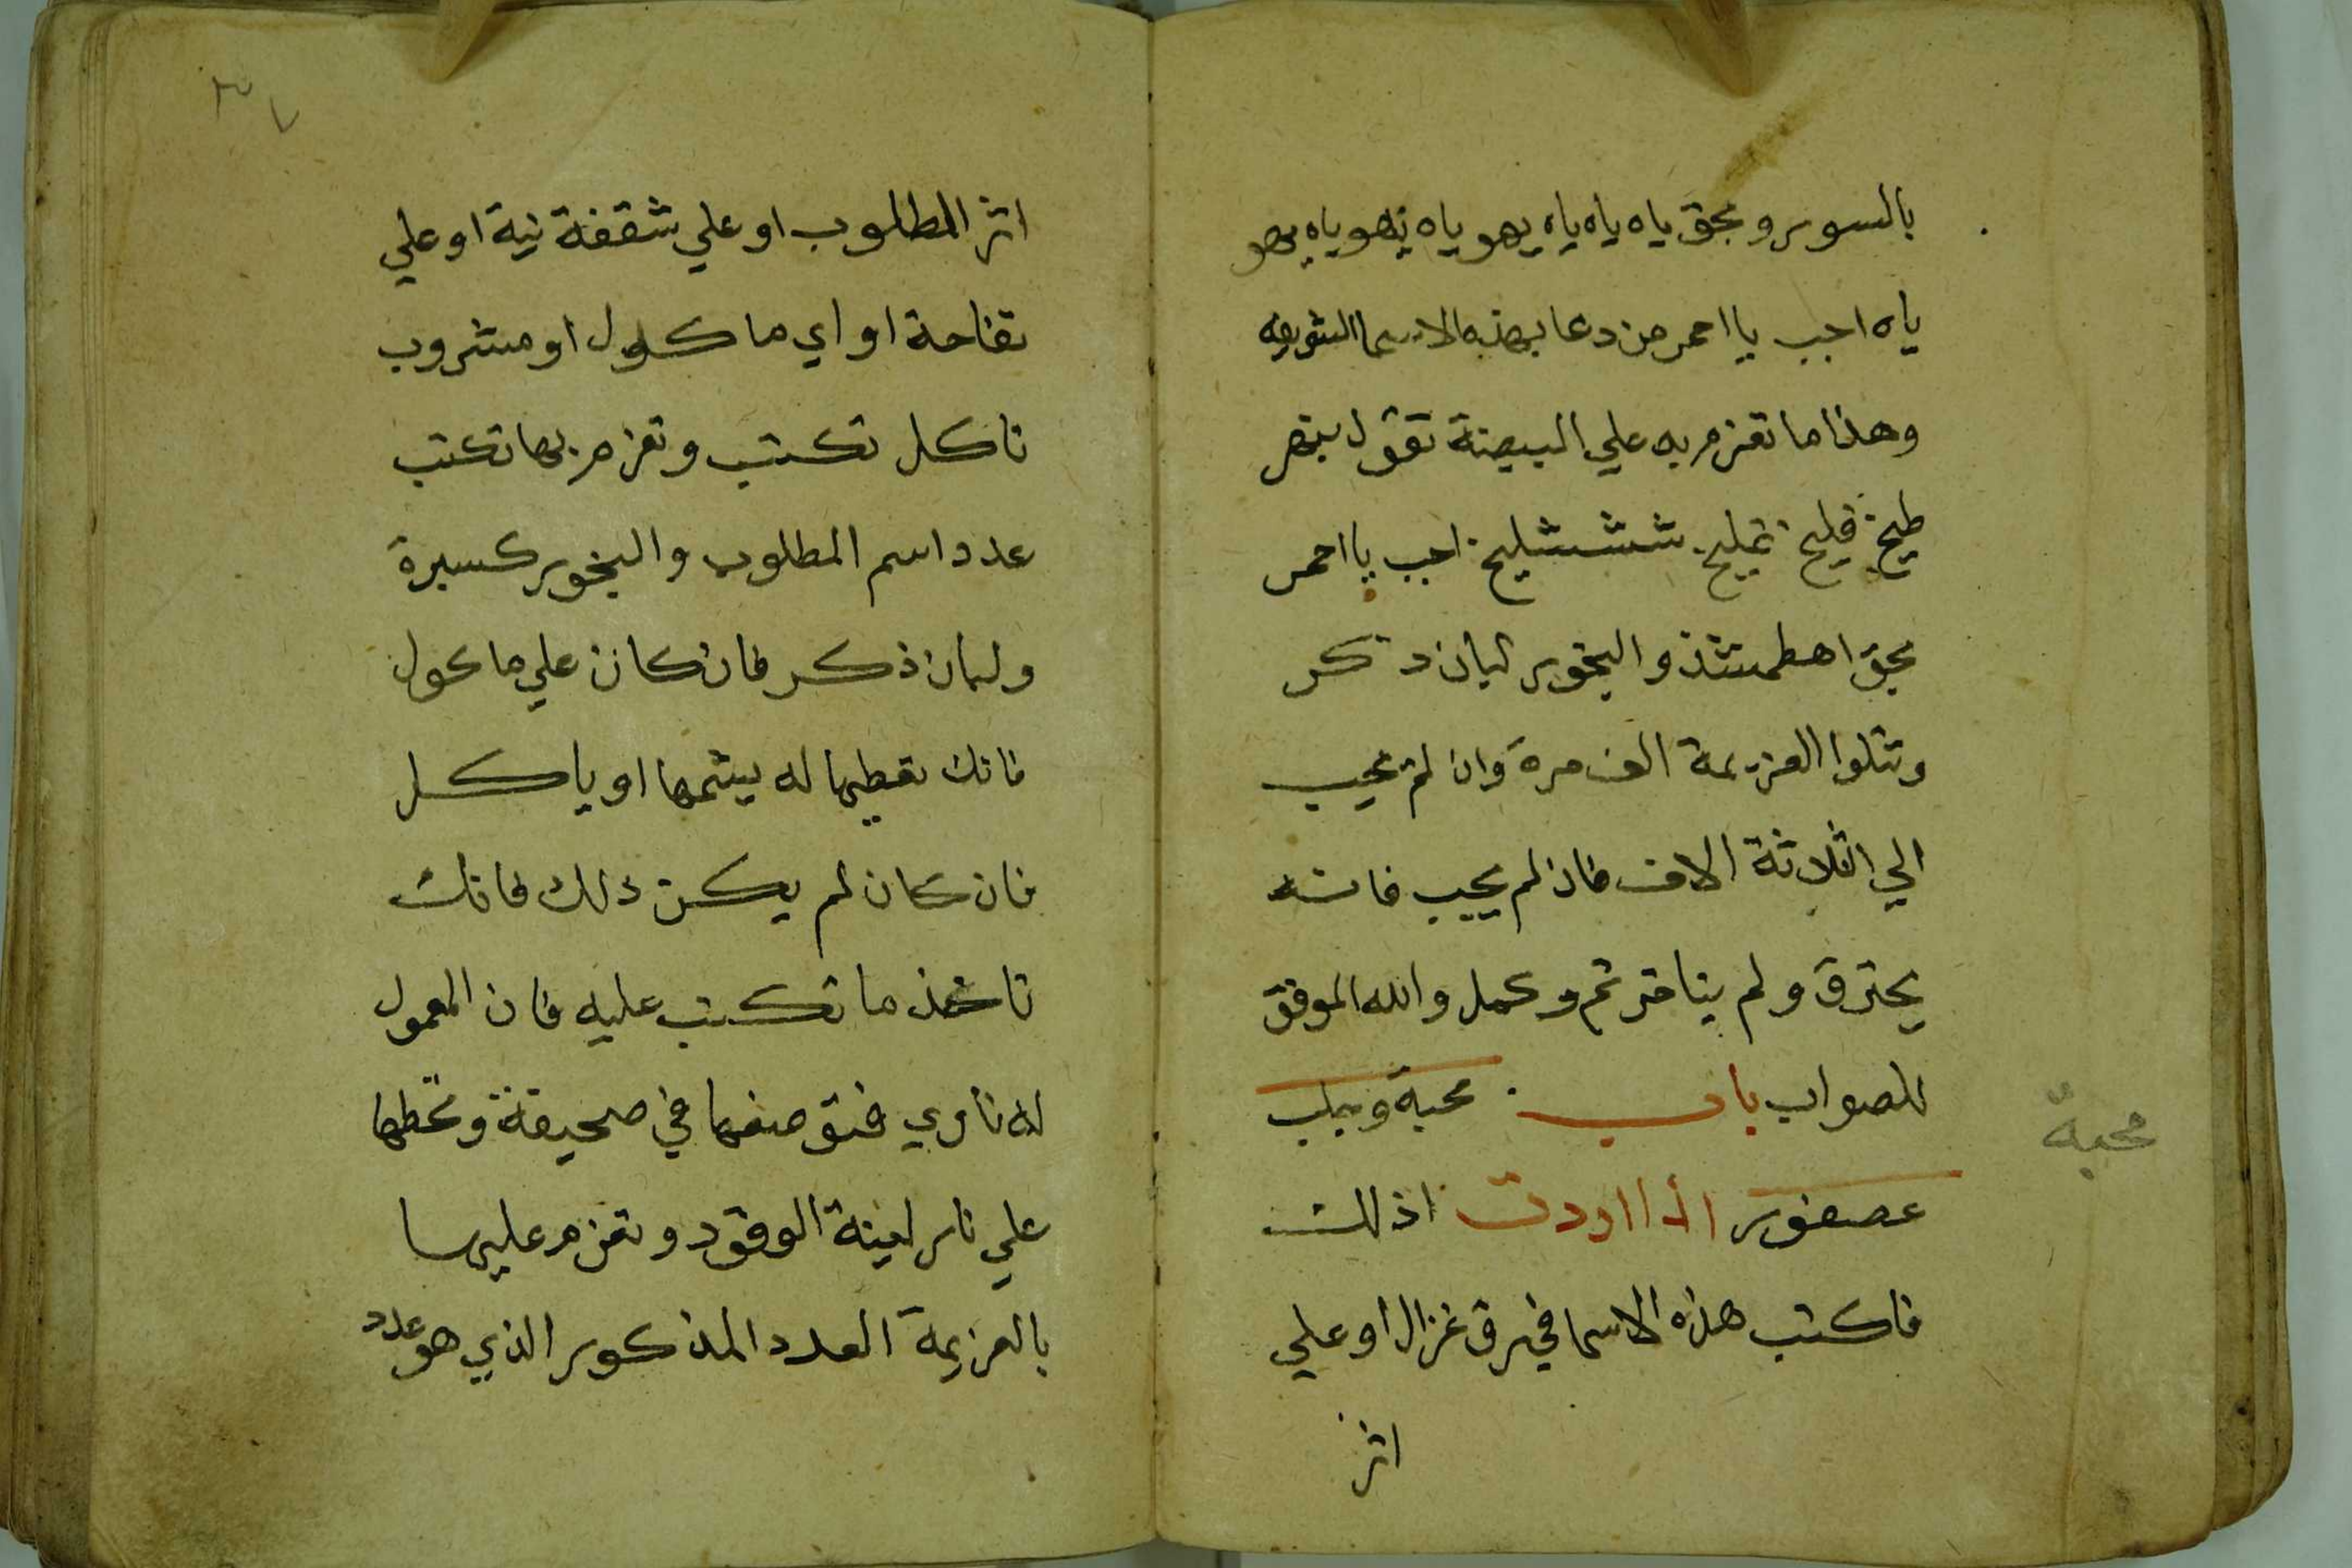 بالسور وبحق ياه ياه ياه يهو ياه يهو ياه يهو
ياه اجب يا احمر من دعا بهذه الاسما الشريفه
وهذا ما تعزم به علي البيضة تقول
طيخ فليخ شششليخ اجب يا احمر
بحق اهطمشذ والبخور لبان دكر
وتتلوا العزيمة الف مرة وان لم يجيب
الي الثلاثة الاف فان لم يجيب فانه
يحترق ولم يتاخر تم وكمل والله الموفق
للصواب باب محبة وجلب
محبة
عصفور اذا اردت اذلك
فاكتب هذه الاسما في رق غزال او علي
اثر
٣٧
اثر المطلوب او علي شقفة نية او علي
تفاحة او اي ماكلول او مشروب
تاكل تكتب وتعزم بها تكتب
عدد اسم المطلوب والبخور كسبرة
ولبان ذكر فان كان علي ماكول
فانك تعطيها له يشمها او ياكل
فان كان لم يكن ذلك فانك
تاخذ ما تكتب عليه فان المعمول
له ناري فتضعها في صحيفة وتحطها
علي نار لينة الوقود وتعزم عليها
بالعزيمة العدد المذكور الذي هو عدد